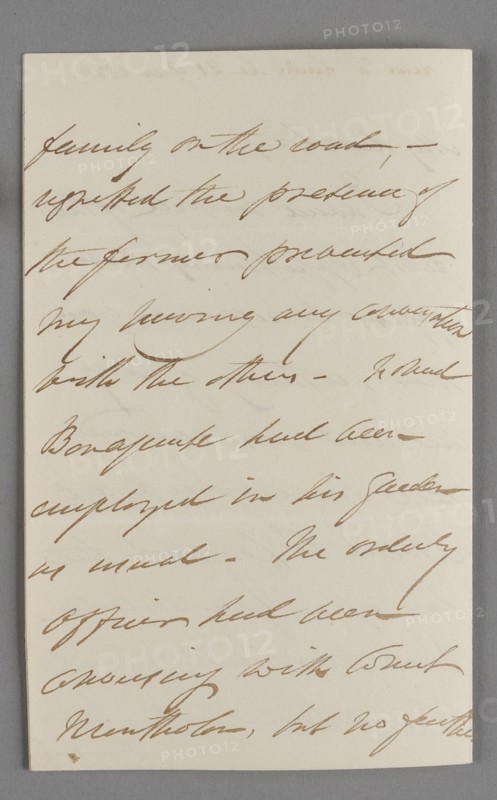 family on the road, –
regretted the presence of
the former prevented
my having any conversation
with the others – found
Bonaparte had been
employed in his garden
as usual – The orderly
officer had been
conversing with Count
Montholon, but no further